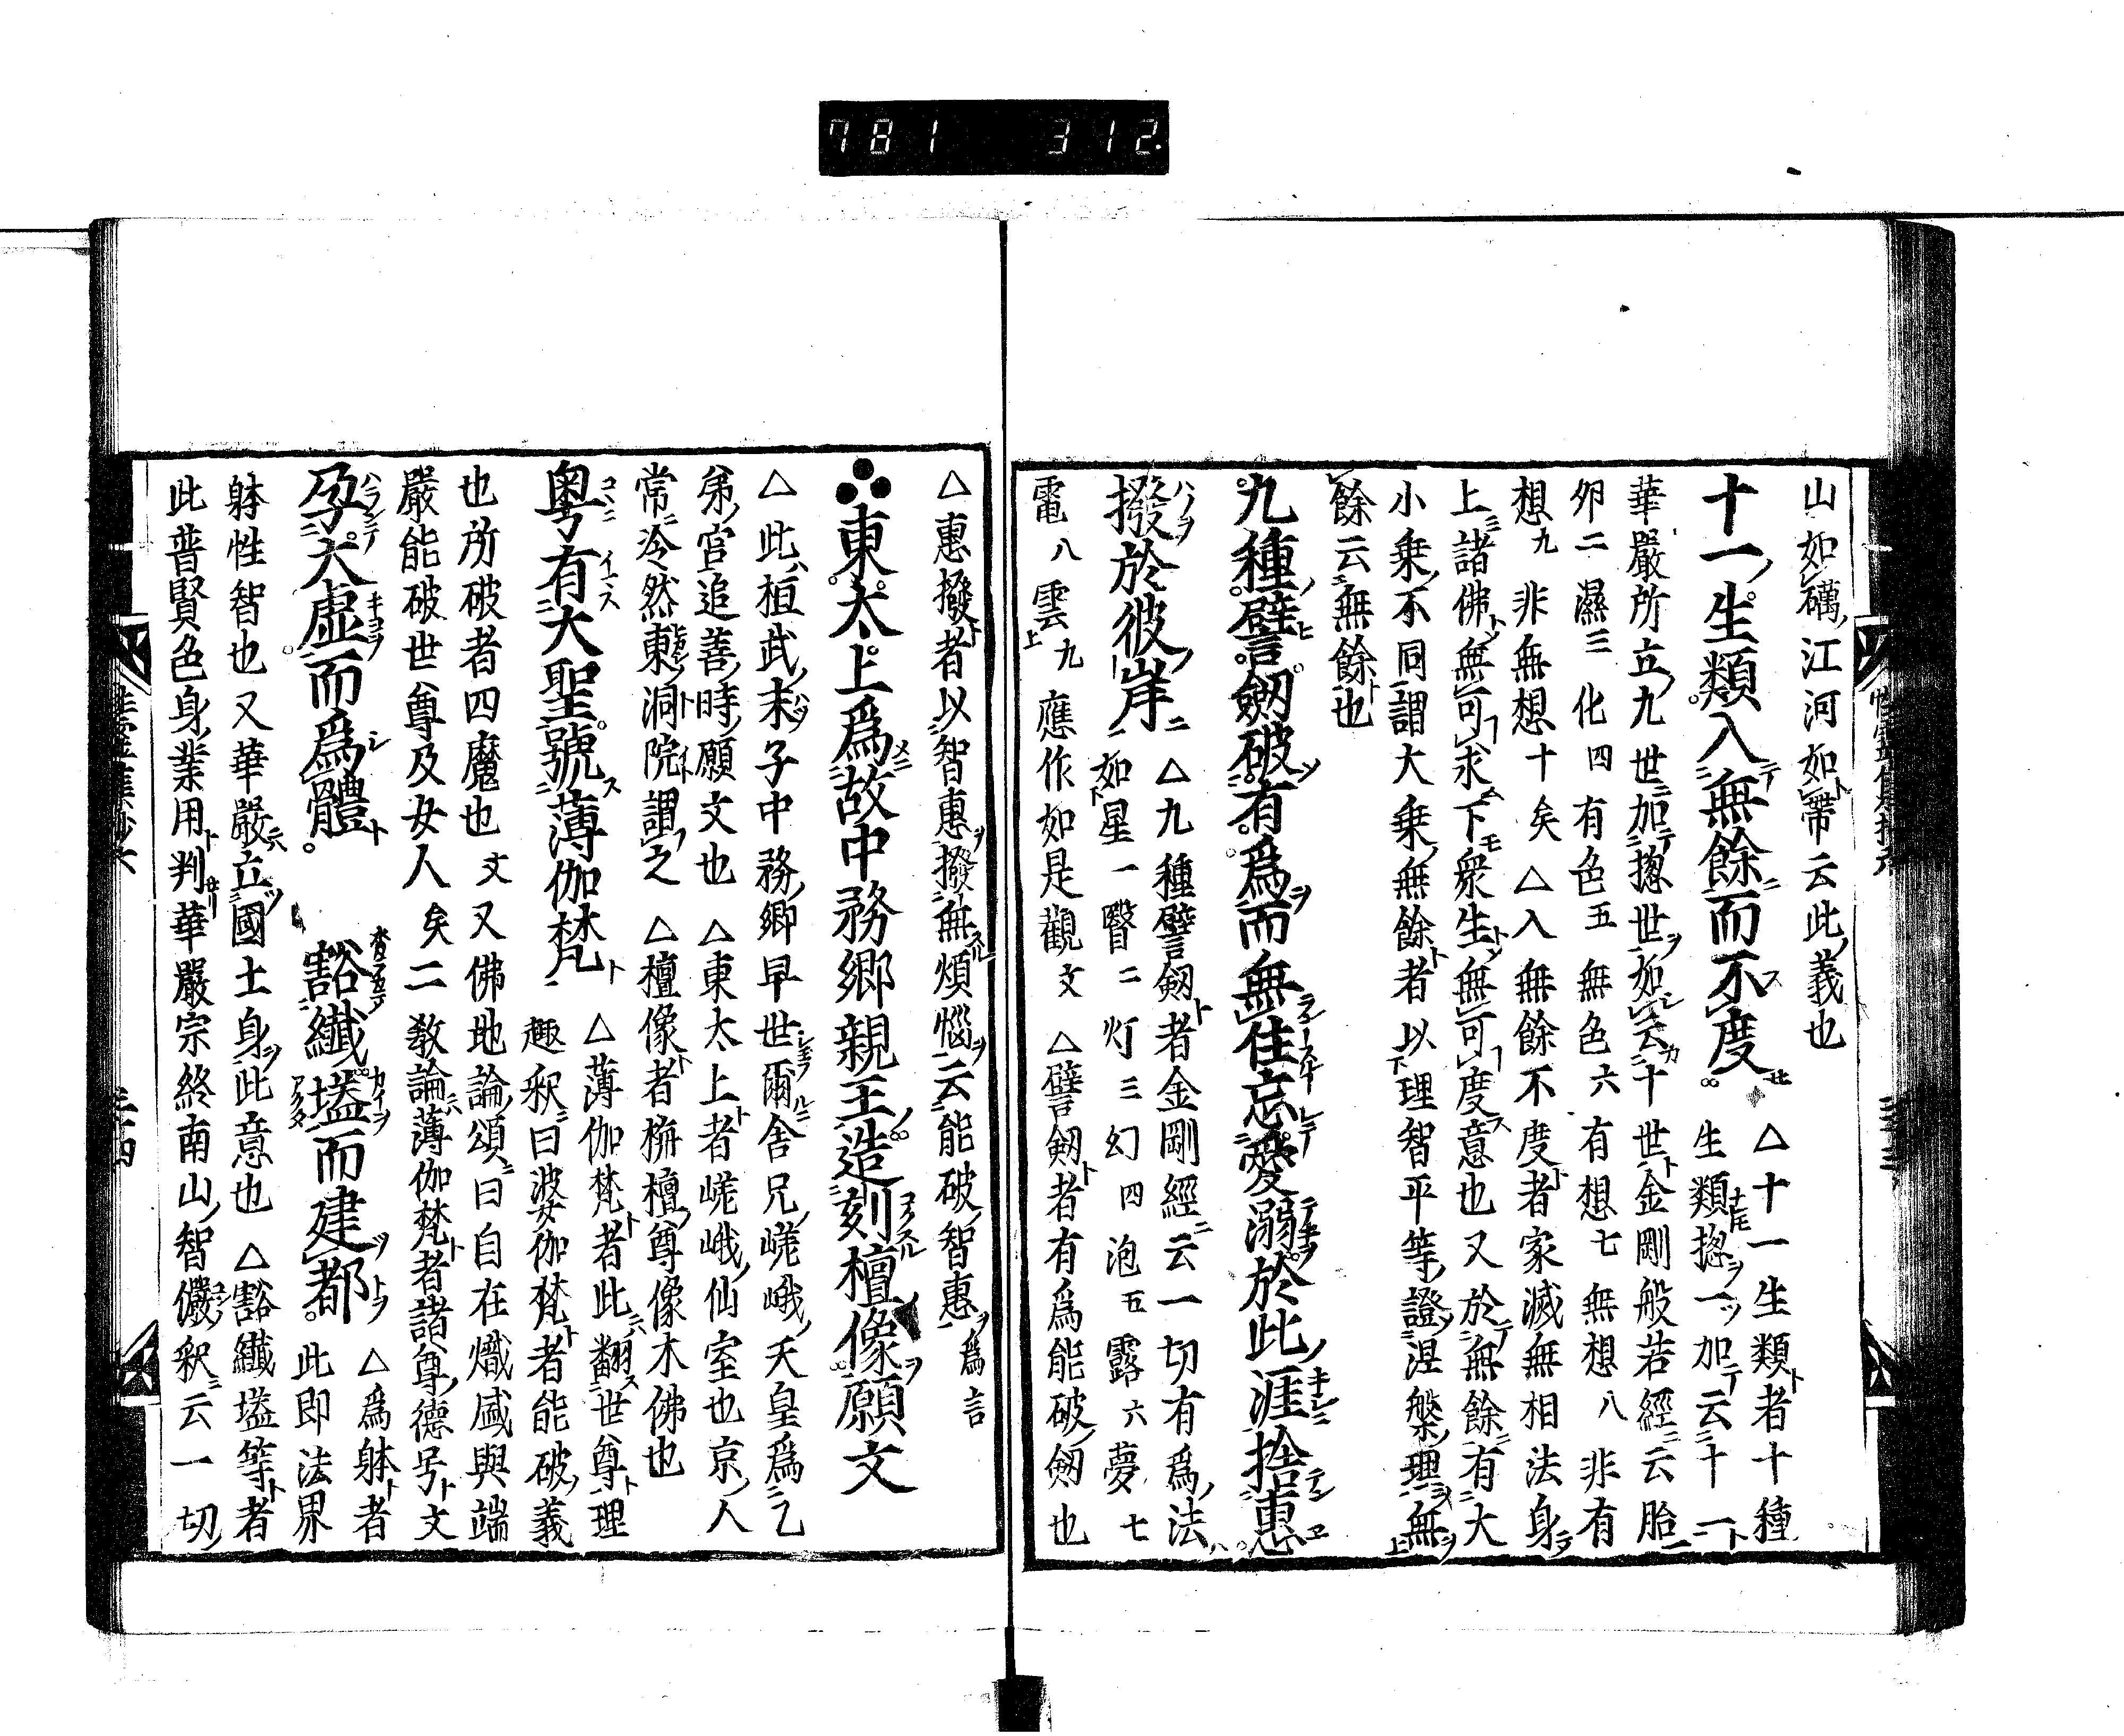 781 312.
山如礪江河如帶云此義也
十一生類入無餘而不度
△十一生類者十種
生類揔一加云十一
華嚴所立九世加揔世如云十世金剛般若經云胎
卵二濕三化四有色五無色六有想七無想八非有
想九非無想十矣△入無餘不度者家滅無相法身
上諸佛無可求下衆生無可度意也又於無餘有大
小乗不同謂大乗無餘者以理智平等證涅槃理無
餘云無餘也
九種譬劔破有爲而無住忘愛溺於此涯捨惠
撥於彼岸
△九種譬劔者金剛經云一切有爲法
如星一瞖二灯三幻四泡五露六夢七
電八雲九應作如是觀文△譬劔者有爲能破劔也
△惠撥者以智惠撥無煩惱云能破智惠爲言
東太上爲故中務郷親王造刻檀像願文
△此桓武末子中務卿早世爾舍兄嵯峨天皇爲乙
弟官追善時願文也△東太上者嵯峨仙室也京人
常冷然東洞院謂之△檀像者栴檀尊像木佛也
粤有大聖號薄伽梵
△薄伽梵者此翻世尊理
趣釈曰婆伽梵者能破義
也所破者四魔也文又佛地論頌曰自在熾盛與端
嚴能破世尊及女人矣二教論薄伽梵者諸尊德号文
孕大虛而爲體
豁纖壒而建都
△爲躰者
此即法界
躰性智也又華嚴立國土身此意也△豁纖壒等者
此普賢色身業用判華嚴宗終南山智儼釈云一切